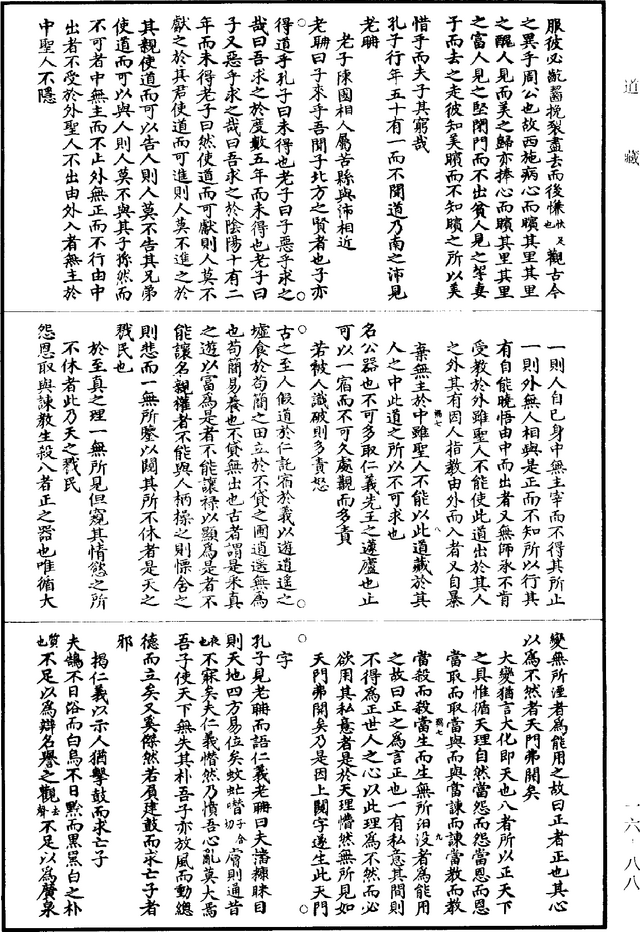 道藏
服彼必齕齧挽裂盡去而後慊快也足觀古今
之異乎周公也故西施病心而矉其里其里
之醜人見而美之歸亦捧心而矉其里其里
之富人見之堅閉門而不出貧人見之挈妻
子而去之走彼知美矉而不知矉之所以美
惜乎而夫子其窮哉
孔子行年五十有一而不聞道乃南之沛見
老聃
老子陳國相人屬苦縣與沛相近
老聃曰子來乎吾聞子北方之賢者也子亦
得道乎孔子曰未得也老子曰子惡乎求之
哉曰吾求之於度數五年而未得也老子曰
子又惡乎求之哉曰吾求之於陰陽十有二
年而未得老子曰然使道而可獻則人莫不
獻之於其君使道而可進則人莫不進之於
其親使道而可以告人則人莫不告其兄弟
使道而可以與人則人莫不與其子孫然而
不可者中無主而不止外無正而不行由中
出者不受於外聖人不出由外入者無主於
中聖人不隱
一則人自已身中無主宰而不得其所止
一則外無人相與是正而不知所以行其
有自能曉悟由中而出者又無師承不肯
受教於外雖聖人不能使此道出於其人
之外其有因人指教由外而入者又自暴
棄無主於中雖聖人不能以此道藏於其
人之中此道之所以不可求也
名公器也不可多取仁義先王之蘧廬也止
可以一宿而不可久處覯而多責
若被人識破則多責怒
古之至人假道於仁託宿於義以遊逍遙之
墟食於苟簡之田立於不貸之圃逍遙無為
也苟簡易養也不貸無出也古者謂是采真
之遊以富為是者不能讓祿以顯為是者不
能讓名親權者不能與人柄操之則慄舍之
則悲而一無所鑒以闚其所不休者是天之
戮民也
於至真之理一無所見但窺其情慾之所
不休者此乃天之戮民
怨恩取與諫教生殺八者正之器也唯循大
變無所湮者為能用之故曰正者正也其心
以為不然者天門弗開矣
大變猶言大化即天也八者所以正天下
之具惟循天理自然當怨而怨當恩而恩
當取而取當與而與當諫而諫當教而教
當殺而殺當生而生無所汨没者為能用
之故曰正之為言正也一有私意其間則
不得為正世人之心以此理為不然而必
欲用其私意者是於天理懵然無所見如
天門弗開矣乃是因上闚字遂生此天門
字
孔子見老聃而語仁義老聃曰夫播糠眯目
則天地四方易位矣蚊虻噆子合切膚則通昔
夜也不寐矣夫仁義憯然乃憤吾心亂莫大焉
吾子使天下無失其朴吾子亦放風而動總
德而立矣又奚傑然若負建鼓而求亡子者
邪
揭仁義以示人猶擊鼓而求亡子
夫鵠不日浴而白烏不日黔而黑黑白之朴
質也不足以為辯名譽之觀去聲不足以為廣泉
一六·八八